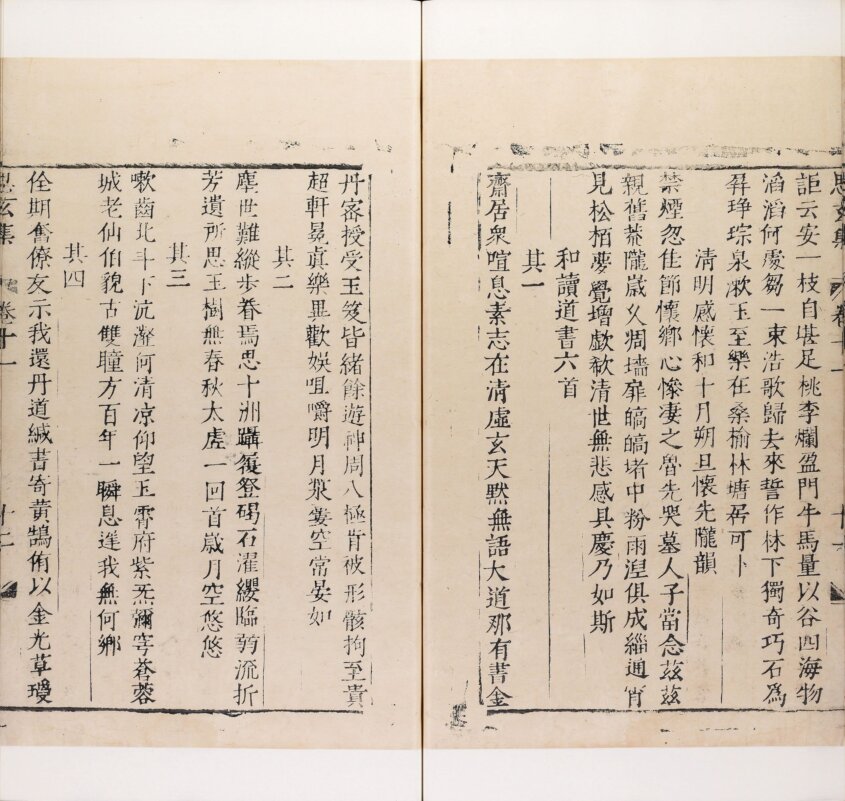 思玄集 卷十一 十一
詎云安一枝自堪足桃李爛盈門牛馬量以谷四海物
滔滔何處芻一束浩歌歸去來誓作林下獨奇巧石為
屏琤琮泉漱玉至樂在桑榆林塘居可卜
清明感懷和十月朔旦懷先隴韻
禁煙忽佳節懷鄉心慘凄之魯先哭墓人子當念茲茲
親舊荒隴歲久凋墻扉皜皜堵中粉雨湼俱成緇通宵
見松栢夢覺增歔欷清世無悲感具慶乃如斯
和讀道書六首
其一
齋居衆喧息素志在清虛玄天默無語大道那有書金
丹密授受玉笈皆緒餘遊神周八極肯被形骸拘至貴
超軒冕真樂異歡娛咀嚼明月漿簍空常晏如
其二
塵世難縱步眷焉思十洲躡履登碣石濯纓臨弱流折
芳遺所思玉樹無春秋大虛一回首歲月空悠悠
其三
嗽齒北斗下沆瀣何清凉仰望玉霄府紫炁彌穹蒼蓉
城老仙伯貌古雙瞳方百年一瞬息逢我無何鄉
其四
佺期奮僚友示我還丹道緘書寄黃鵠侑以金光草璦
思玄集 卷十一 十二